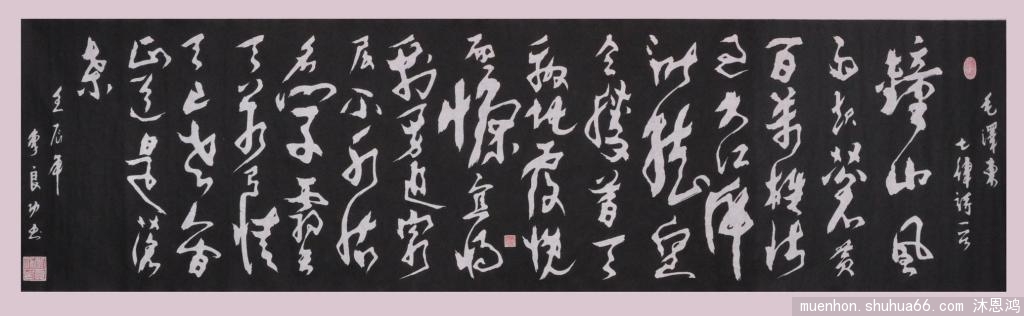 毛澤東
七律詩一首
鐘山風
雨起蒼黃
百萬雄師
過大江虎
踞龍盤
今勝昔天
翻地覆慨
而慷宜將
剩勇追窮
寇不可沽
名學霸王
天若有情
天亦老人間
正道是滄
桑
壬辰年
良功书
muenhon.shuhua66.com 沐恩鸿